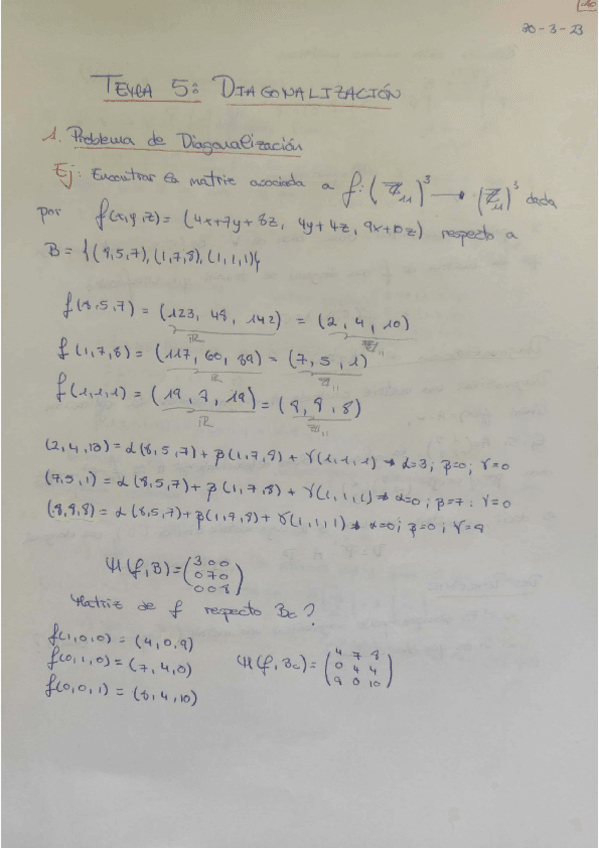 20-3-23
TEMA 5: DIAGONALIZACIÓN
1. Problema de Diagonalización
Ej: Encontrar la matriz asociada a f: (Z₁₁)³ → (Z₁₁)³ dada
por f(x,y,z) = (4x+7y+8z, 4y+4z, 9x+10z) respecto a
B = {(8,5,7), (1,7,8), (1,1,1)}
f(8,5,7) = (123, 48, 142) = (2, 4, 10)
ℝ Z₁₁
f(1,7,8) = (117, 60, 89) = (7, 5, 1)
ℝ Z₁₁
f(1,1,1) = (19, 8, 19) = (8, 8, 8)
ℝ Z₁₁
(2,4,10) = α(8,5,7) + β(1,7,8) + γ(1,1,1) → α=3; β=0; γ=0
(7,5,1) = α(8,5,7) + β(1,7,8) + γ(1,1,1) → α=0; β=7; γ=0
(8,8,8) = α(8,5,7) + β(1,7,8) + γ(1,1,1) → α=0; β=0; γ=8
M(f,B) = (3 0 0
0 7 0
0 0 8)
Matriz de f respecto Bc?
f(1,0,0) = (4,0,9)
f(0,1,0) = (7,4,0) M(f,Bc) = (4 7 8
0 4 4
9 0 10)
f(0,0,1) = (8,4,10)